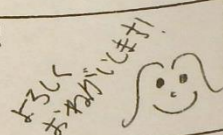 よろしく
おねがいします!